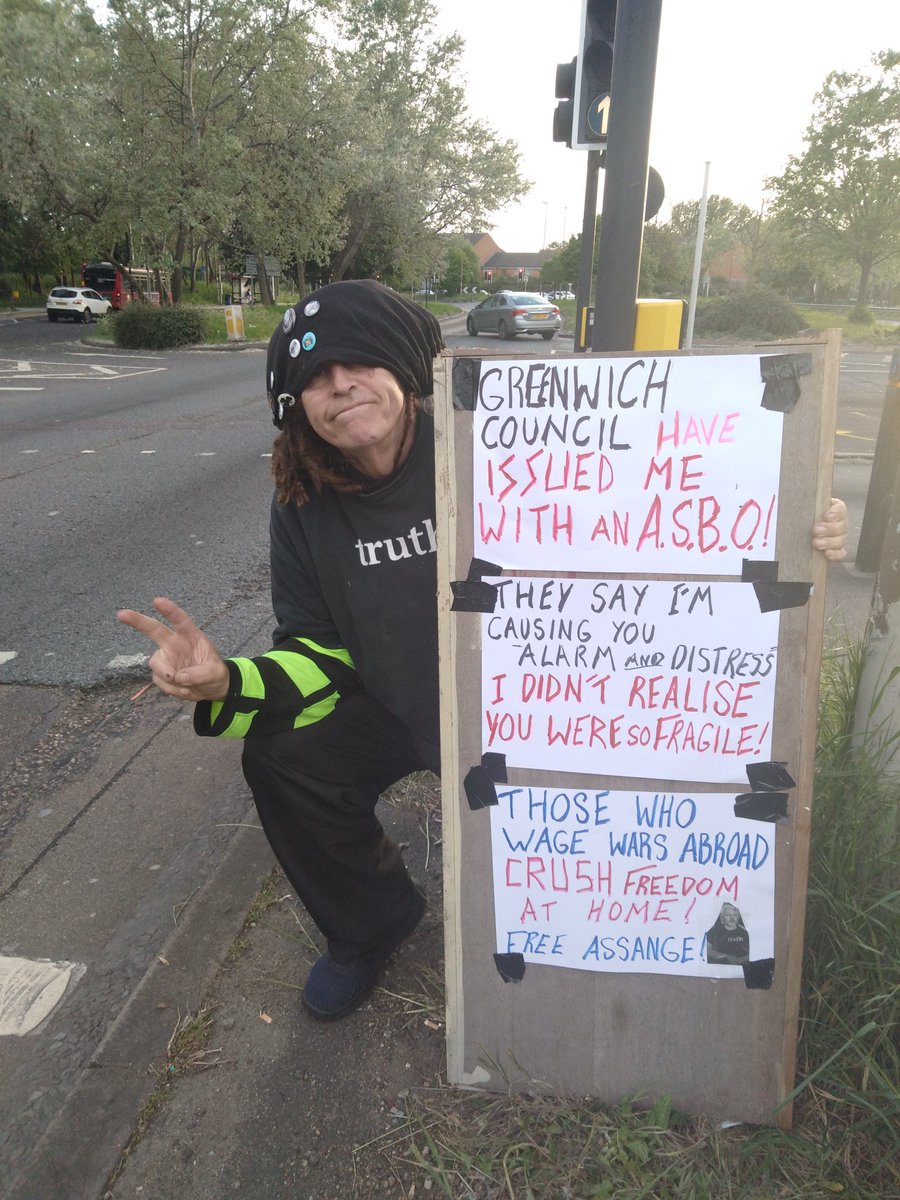 truth
GREENWICH
COUNCIL HAVE
ISSUED ME
WITH AN A.S.B.O!
THEY SAY I'M
CAUSING YOU
"ALARM AND DISTRESS"
I DIDN'T REALISE
YOU WERE SO FRAGILE!
THOSE WHO
WAGE WARS ABROAD
CRUSH FREEDOM
AT HOME!
FREE ASSANGE!
truth